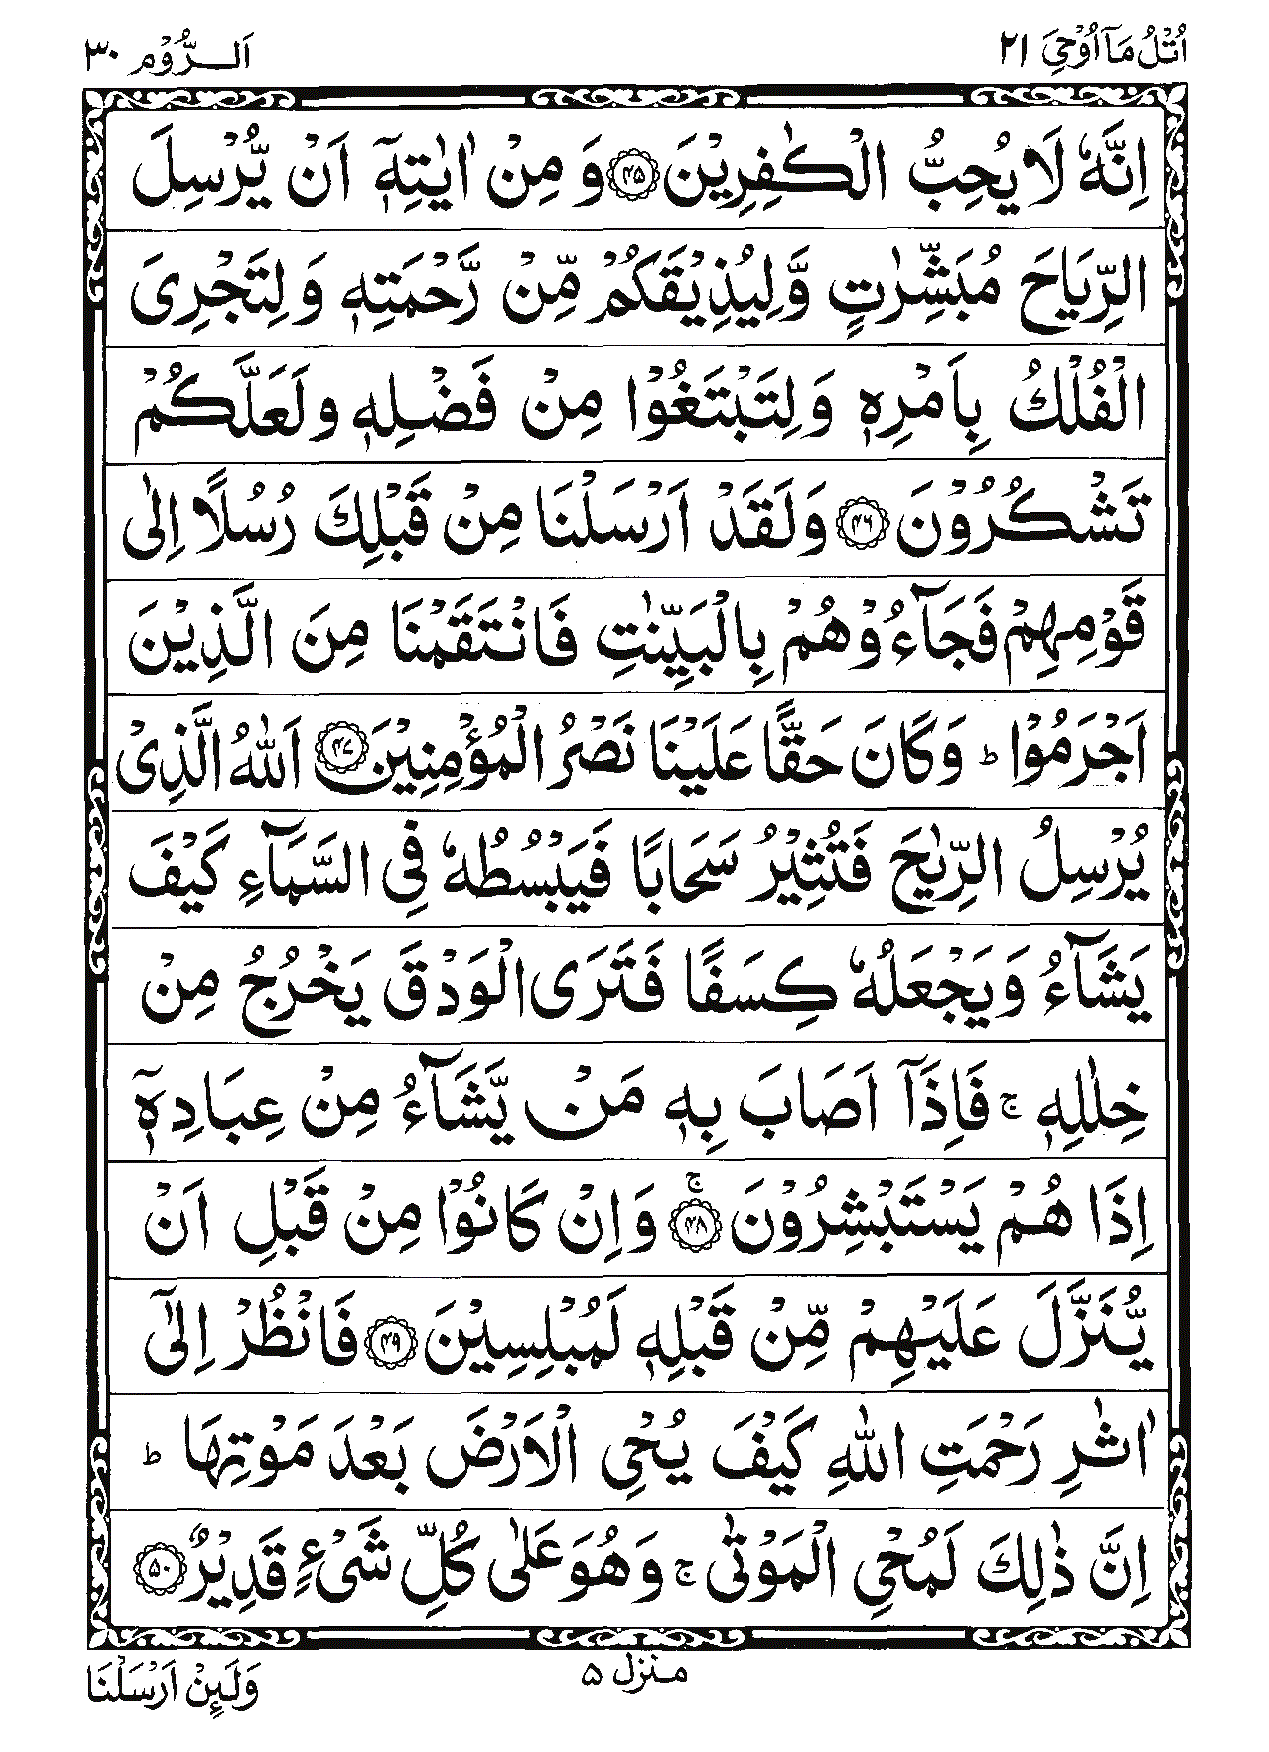 اُتْلُ مَاۤ اُوْحِیَ ۲۱
اَلرُّوْم ۳۰
اِنَّهٗ لَا یُحِبُّ الْكٰفِرِیْنَ ۝۴۵ وَ مِنْ اٰیٰتِهٖۤ اَنْ یُّرْسِلَ
الرِّیَاحَ مُبَشِّرٰتٍ وَّلِیُذِیْقَكُمْ مِّنْ رَّحْمَتِهٖ وَلِتَجْرِیَ
الْفُلْكُ بِاَمْرِهٖ وَلِتَبْتَغُوْا مِنْ فَضْلِهٖ وَلَعَلَّكُمْ
تَشْكُرُوْنَ ۝۴۶ وَلَقَدْ اَرْسَلْنَا مِنْ قَبْلِكَ رُسُلًا اِلٰی
قَوْمِهِمْ فَجَآءُوْهُمْ بِالْبَیِّنٰتِ فَانْتَقَمْنَا مِنَ الَّذِیْنَ
اَجْرَمُوْا ؕ وَكَانَ حَقًّا عَلَیْنَا نَصْرُ الْمُؤْمِنِیْنَ ۝۴۷ اَللّٰهُ الَّذِیْ
یُرْسِلُ الرِّیٰحَ فَتُثِیْرُ سَحَابًا فَیَبْسُطُهٗ فِی السَّمَآءِ كَیْفَ
یَشَآءُ وَیَجْعَلُهٗ كِسَفًا فَتَرَی الْوَدْقَ یَخْرُجُ مِنْ
خِلٰلِهٖ ۚ فَاِذَاۤ اَصَابَ بِهٖ مَنْ یَّشَآءُ مِنْ عِبَادِهٖۤ
اِذَا هُمْ یَسْتَبْشِرُوْنَ ۝۴۸ۚ وَاِنْ كَانُوْا مِنْ قَبْلِ اَنْ
یُّنَزَّلَ عَلَیْهِمْ مِّنْ قَبْلِهٖ لَمُبْلِسِیْنَ ۝۴۹ فَانْظُرْ اِلٰۤی
اٰثٰرِ رَحْمَتِ اللّٰهِ كَیْفَ یُحْیِ الْاَرْضَ بَعْدَ مَوْتِهَا ؕ
اِنَّ ذٰلِكَ لَمُحْیِ الْمَوْتٰی ۚ وَهُوَ عَلٰی كُلِّ شَیْءٍ قَدِیْرٌ ۝۵۰
منزل ۵
وَلَىِٕنْ اَرْسَلْنَا